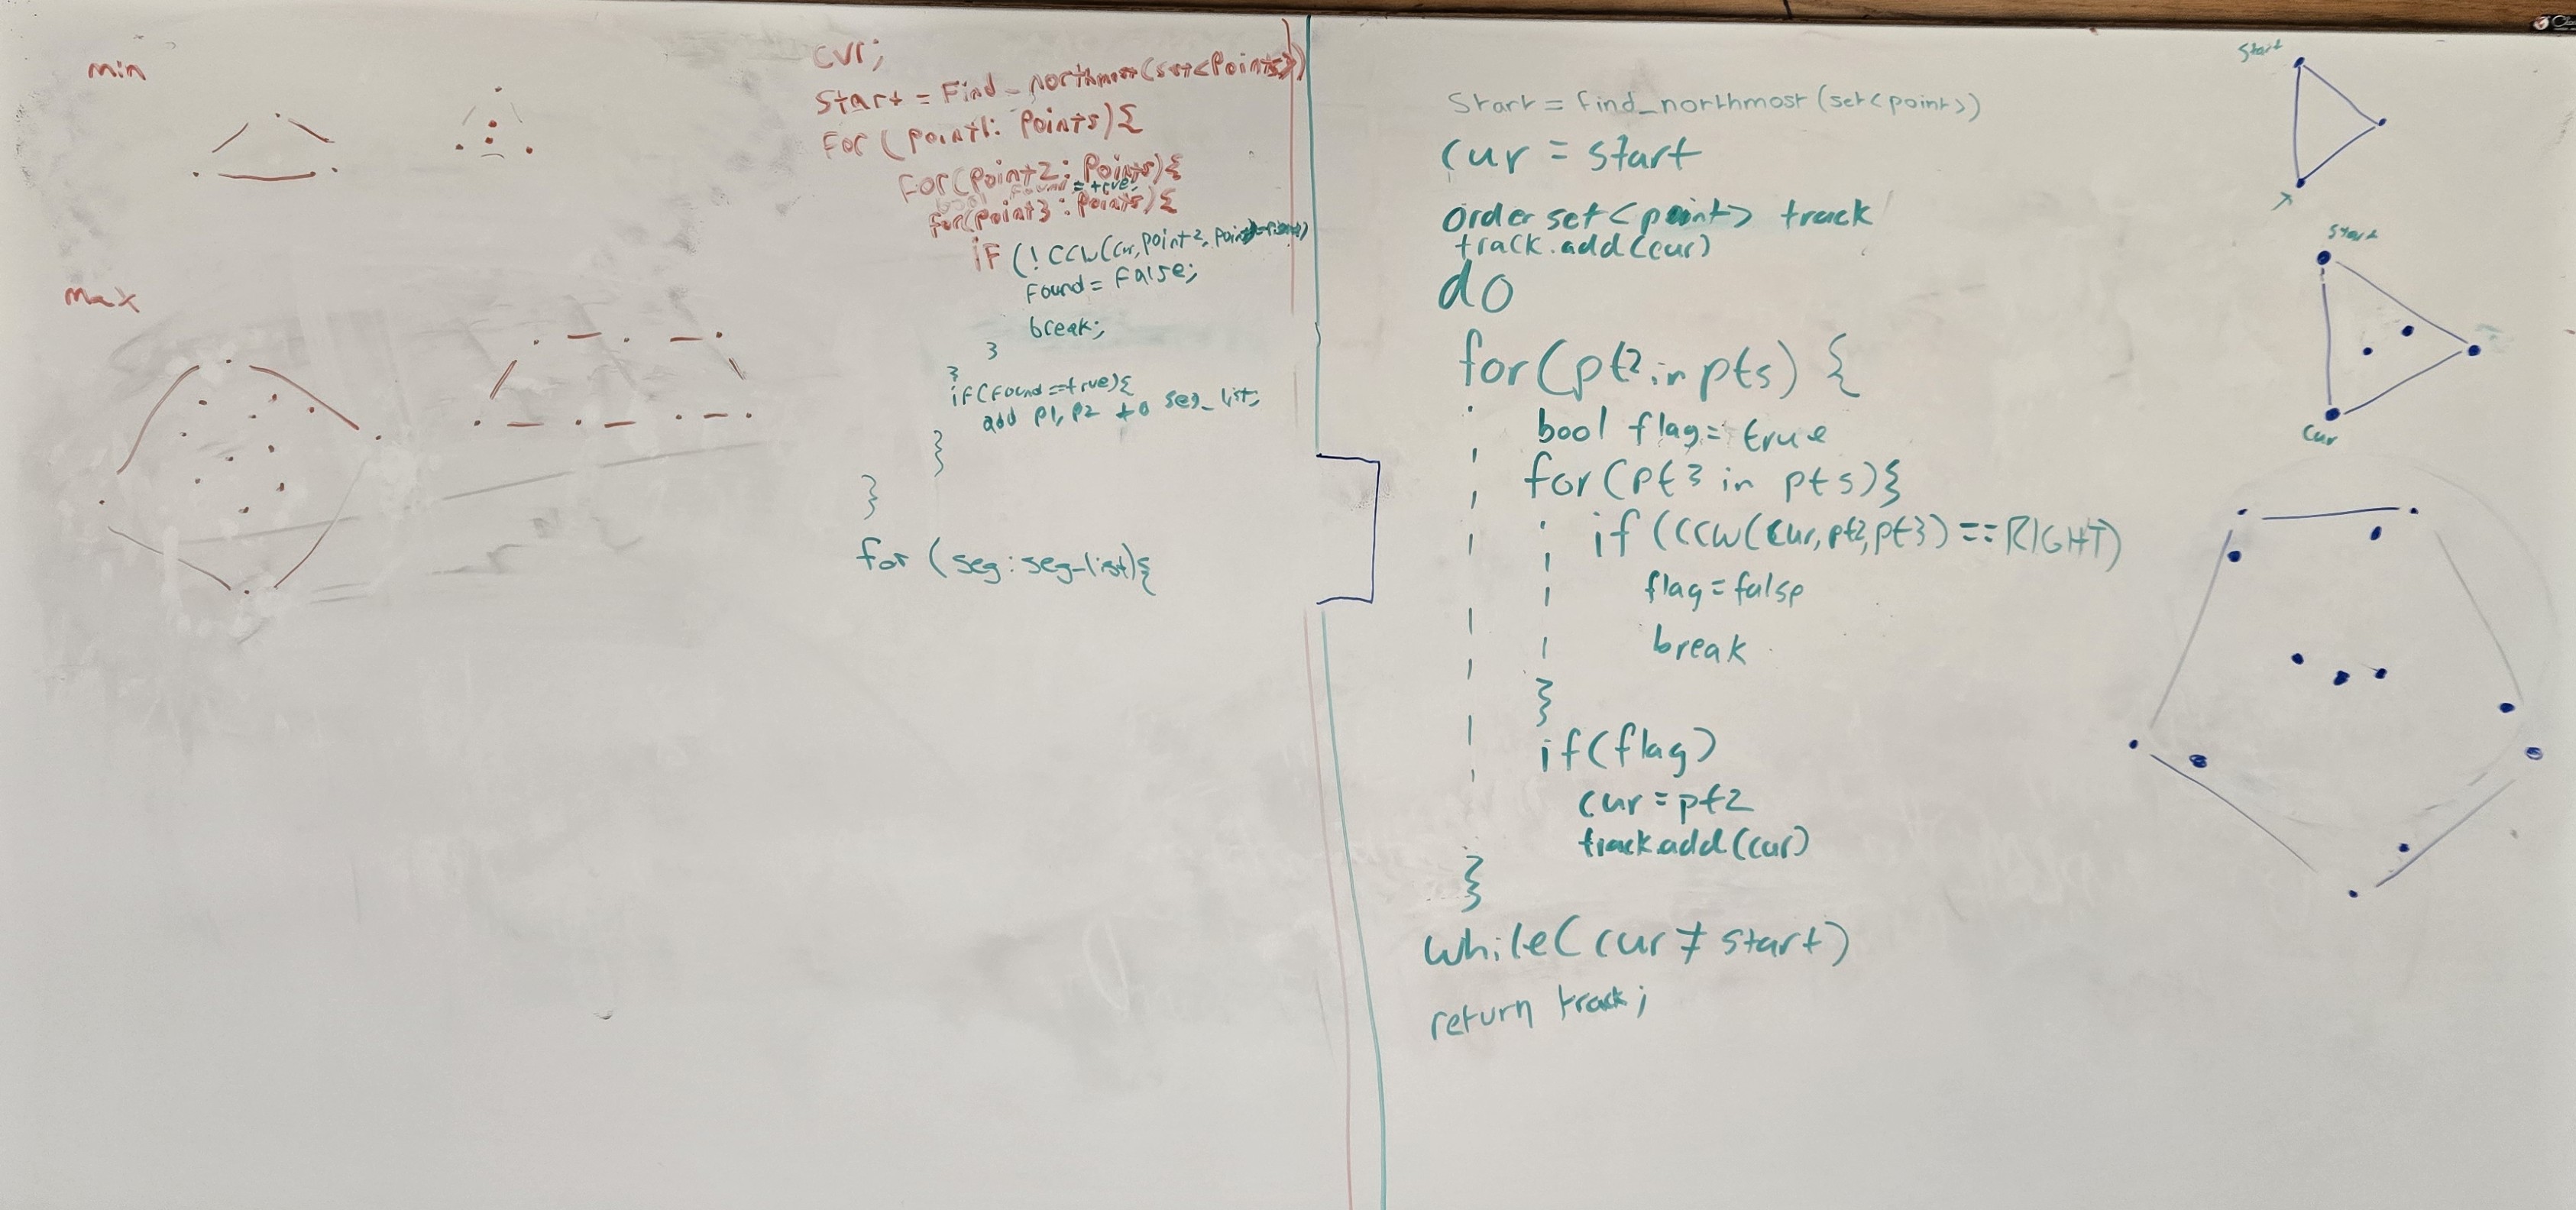 min
max
cur;
Start = Find_northmost(set<Points>)
For (point1: Points){
For(point2: Points){
found = true;
for(point3: Points){
if (!CCW(cur, point2,
Found = False;
break;
}
}
if(found==true){
add p1, p2 to seg_list;
}
}
}
for (seg: seg-list){
Start = find_northmost(set<point>)
cur = start
order set<point> track
track.add(cur)
do
for(pt2 in pts) {
bool flag = true
for(pt3 in pts){
if (CCW(cur,pt2,pt3) == RIGHT)
flag = false
break
}
}
if(flag)
cur = pt2
track.add(cur)
}
}
while(cur ≠ start)
return track;
Start
Start
Cur